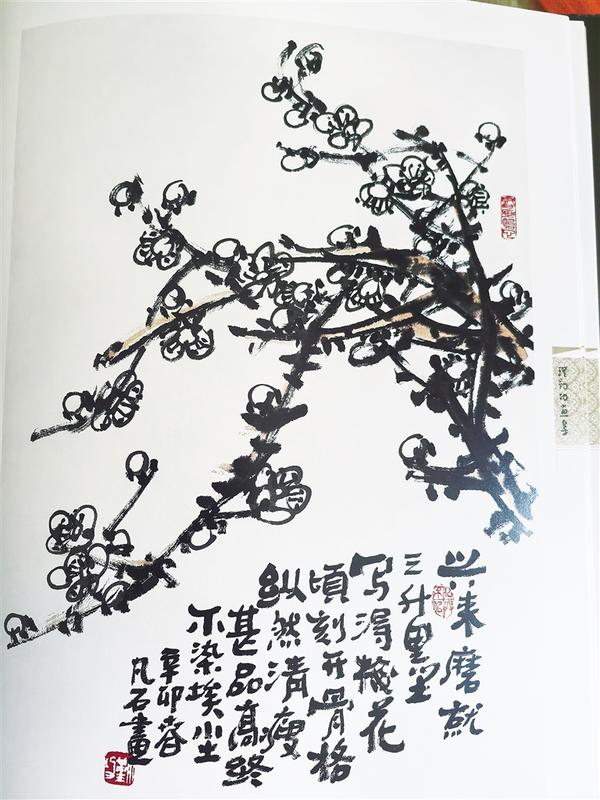 来磨就
三升墨
写得梅花
頃刻开骨格
纵然清瘦
甚品高终
不染埃尘
辛卯春
凡石畫